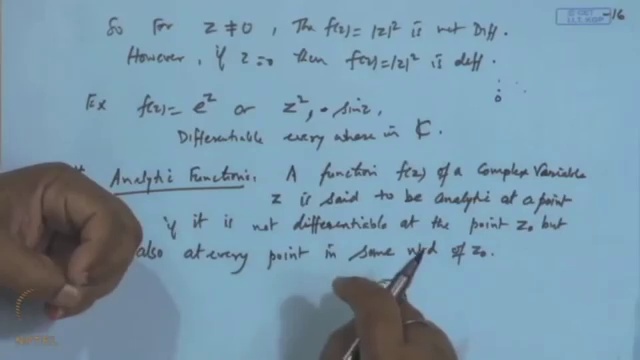 So For z ≠ 0, The f(z) = |z|² is not Diff.
However, if z = 0 then f(z) = |z|² is diff.
Ex f(z) = e^z or z², sin z,
Differentiable every where in ℂ.
Analytic Function: A function f(z) of a Complex Variable
z is said to be analytic at a point
if it is not differentiable at the point z₀ but
also at every point in some nbd of z₀.